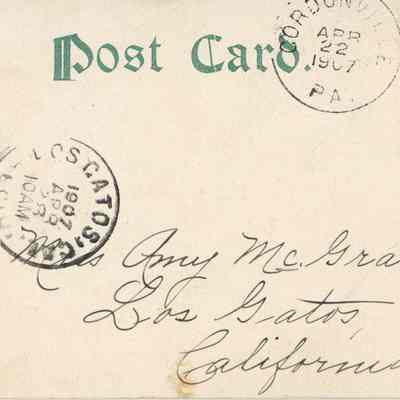 Post Card.
GORDONVILLE
APR
22
1907
PA.
LOS GATOS, CAL.
1907
APR
10AM
Miss Amy Mc. Gra
Los Gatos,
California